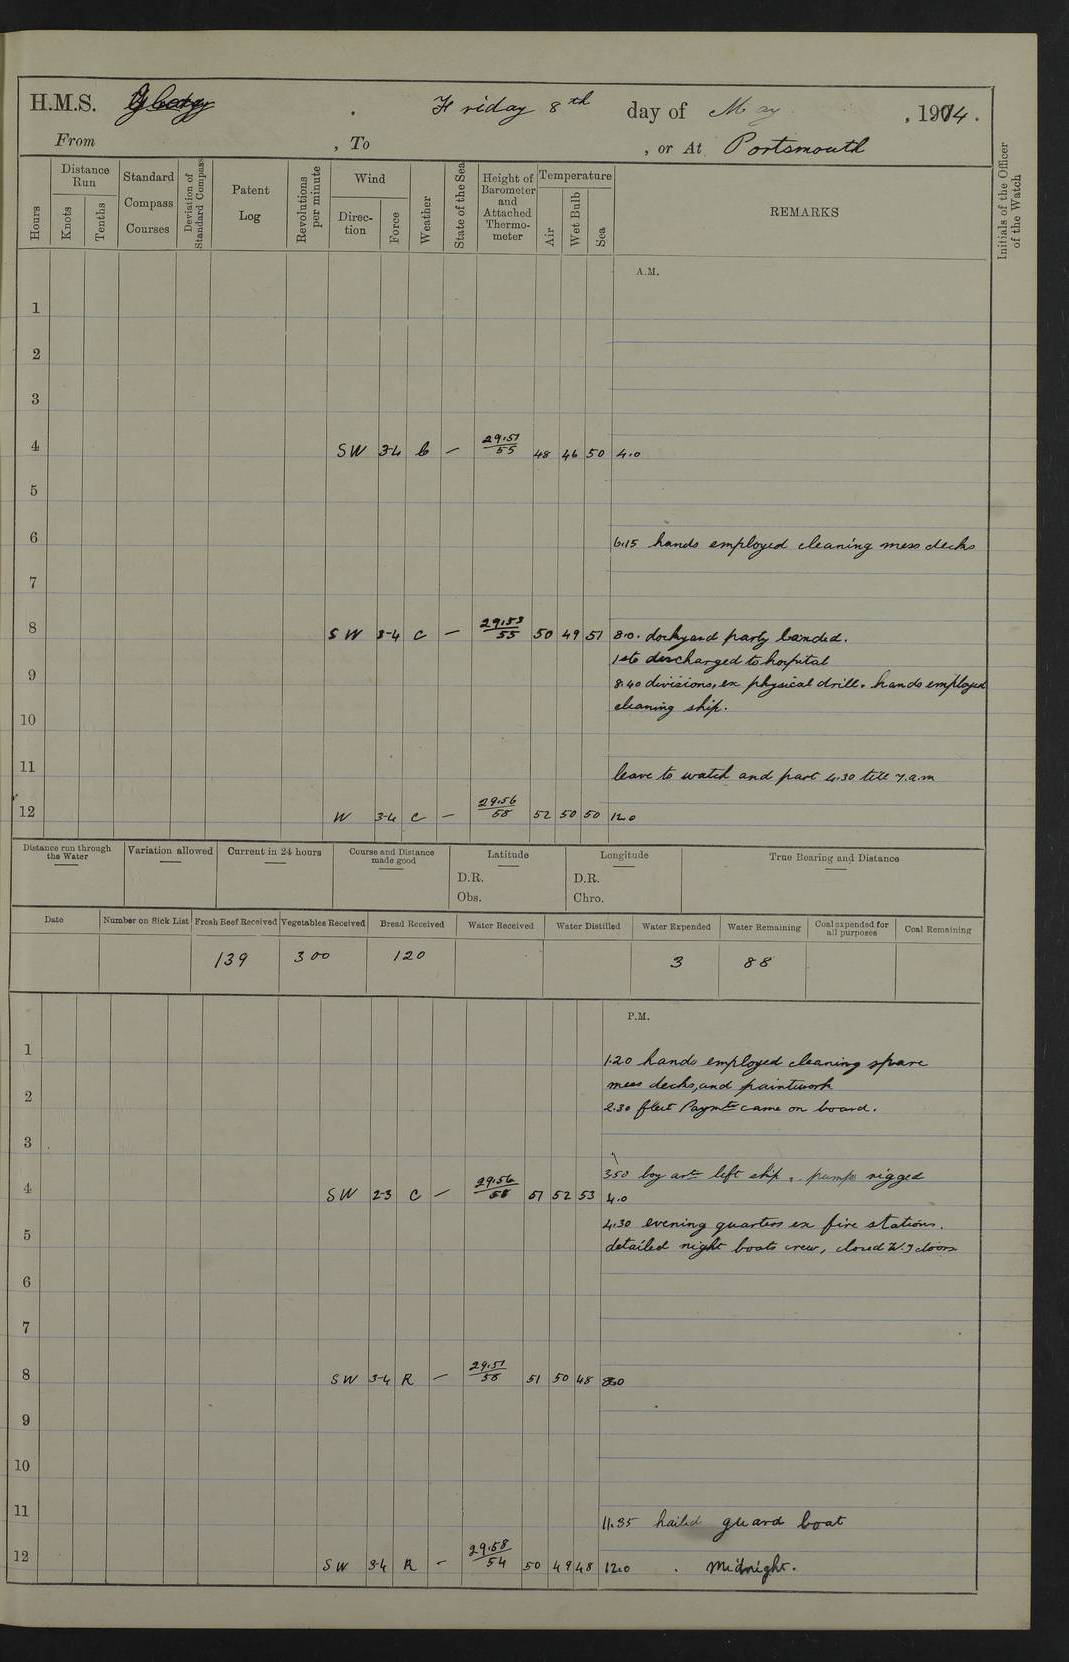 H.M.S. Glory . Friday 8th day of May , 1914.
From , To , or At Portsmouth
Hours
Distance Run
Knots
Tenths
Standard Compass Courses
Deviation of Standard Compass
Patent Log
Revolutions per minute
Wind
Direction
Force
Weather
State of the Sea
Height of Barometer and Attached Thermometer
Temperature
Air
Wet Bulb
Sea
REMARKS
Initials of the Officer of the Watch
A.M.
1
2
3
4 SW 3-4 b — 29.51/55 48 46 50 4.0
5
6 6.15 hands employed cleaning mess decks
7
8 SW 3-4 c — 29.53/55 50 49 51 8.0. dockyard party landed.
1 sto discharged to hospital
9 8.40 divisions, ex physical drill. hands employed
cleaning ship.
10
11 leave to watch and part 4.30 till 7.a.m
12 W 3-4 c — 29.56/58 52 50 50 12.0
Distance run through the Water
Variation allowed
Current in 24 hours
Course and Distance made good
Latitude
D.R.
Obs.
Longitude
D.R.
Chro.
True Bearing and Distance
Date
Number on Sick List
Fresh Beef Received
Vegetables Received
Bread Received
Water Received
Water Distilled
Water Expended
Water Remaining
Coal expended for all purposes
Coal Remaining
139 300 120 3 88
P.M.
1 1.20 hands employed cleaning spare
mess decks, and paintwork
2 2.30 fleet Paymr came on board.
3
3.50 boy left ship. pumps rigged
4 SW 2-3 c — 29.56/58 51 52 53 4.0
4.30 evening quarters ex fire stations.
5 detailed night boats crew, closed W.T doors
6
7
8 SW 3-4 R — 29.51/58 51 50 48 8.0
9
10
11 11.35 hailed guard boat
12 SW 3-4 R — 29.58/54 50 49 48 12.0 . Midnight.